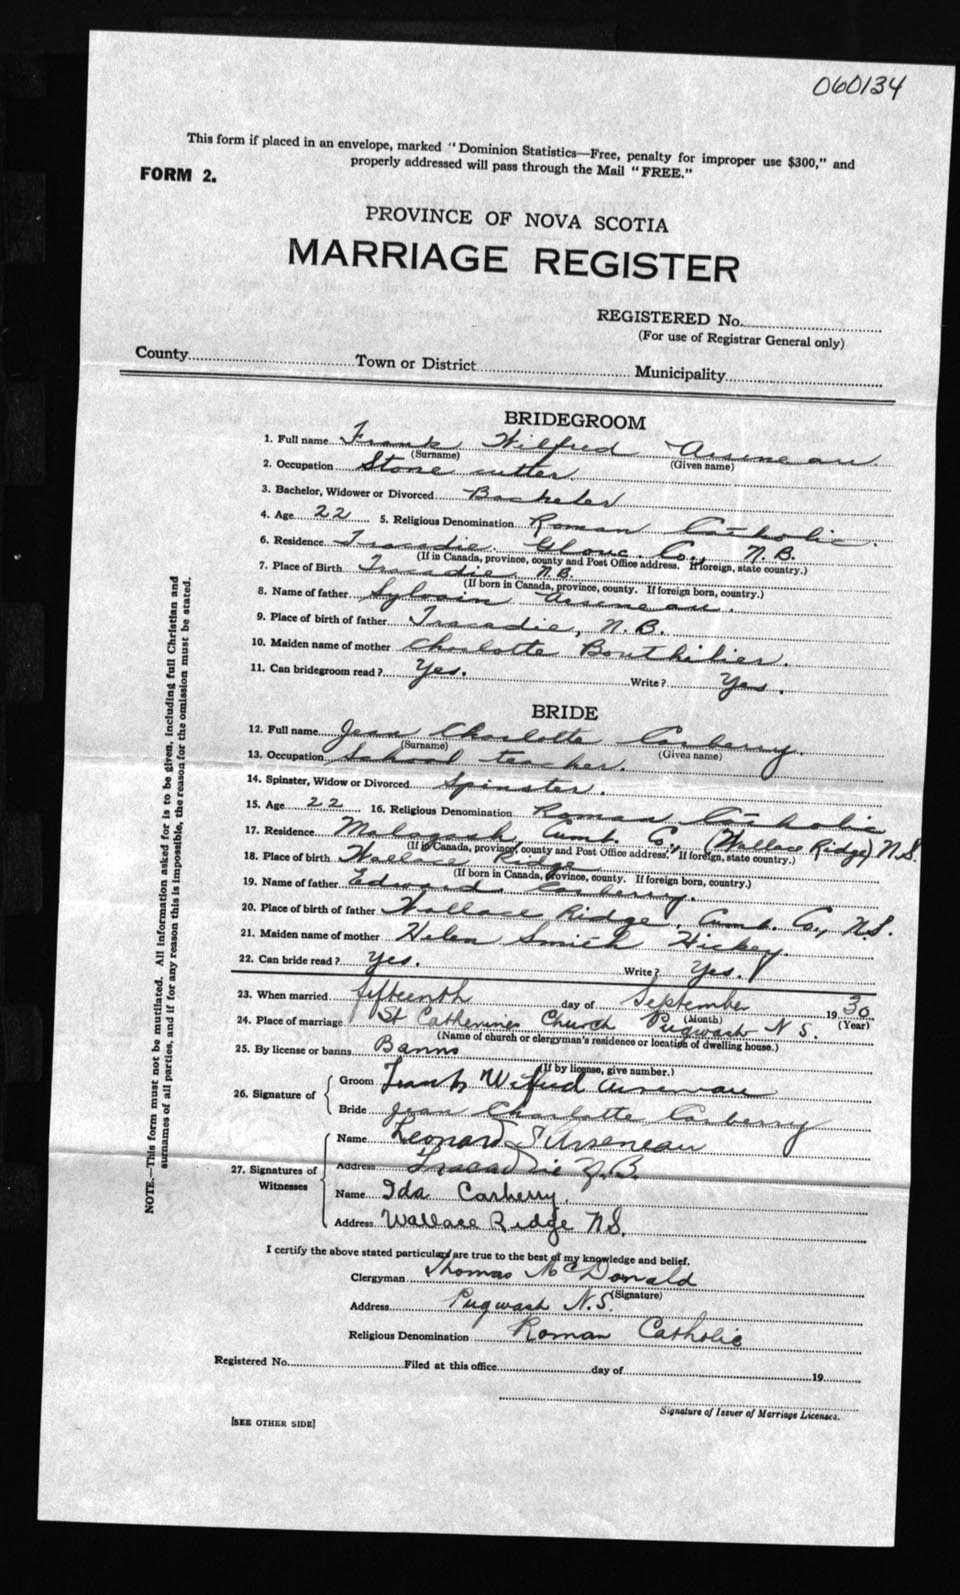 060134
This form if placed in an envelope, marked "Dominion Statistics—Free, penalty for improper use $300," and
properly addressed will pass through the Mail "FREE."
FORM 2.
PROVINCE OF NOVA SCOTIA
MARRIAGE REGISTER
REGISTERED No.
(For use of Registrar General only)
County Town or District Municipality
BRIDEGROOM
1. Full name Frank Wilfred Arseneau.
(Surname) (Given name)
2. Occupation Stone cutter.
3. Bachelor, Widower or Divorced Bachelor
4. Age 22 5. Religious Denomination Roman Catholic.
6. Residence Tracadie, Glouc. Co., N.B.
(If in Canada, province, county and Post Office address. If foreign, state country.)
7. Place of Birth Tracadie, N.B.
(If born in Canada, province, county. If foreign born, country.)
8. Name of father Sylvain Arseneau.
9. Place of birth of father Tracadie, N.B.
10. Maiden name of mother Charlotte Bouthilier.
11. Can bridegroom read? Yes. Write? Yes.
BRIDE
12. Full name Jean Charlotte Carberry.
(Surname) (Given name)
13. Occupation School teacher.
14. Spinster, Widow or Divorced Spinster.
15. Age 22 16. Religious Denomination Roman Catholic
17. Residence Malagash, Cumb. Co., (Wallace Ridge) N.S.
(If in Canada, province, county and Post Office address. If foreign, state country.)
18. Place of birth Wallace Ridge
(If born in Canada, province, county. If foreign born, country.)
19. Name of father Edward Carberry.
20. Place of birth of father Wallace Ridge, Cumb. Co., N.S.
21. Maiden name of mother Helen Smith Hickey.
22. Can bride read? Yes. Write? Yes.
23. When married fifteenth day of September 1930
(Month) (Year)
24. Place of marriage St Catherines Church Pugwash N S.
(Name of church or clergyman's residence or location of dwelling house.)
25. By license or banns Banns
(If by license, give number.)
26. Signature of
Groom Frank Wilfred Arseneau
Bride Jean Charlotte Carberry
27. Signatures of Witnesses
Name Leonard Arseneau
Address Tracadie N.B.
Name Ida Carberry.
Address Wallace Ridge N.S.
I certify the above stated particulars are true to the best of my knowledge and belief.
Clergyman Thomas McDonald
(Signature)
Address Pugwash N.S.
Religious Denomination Roman Catholic
Registered No. Filed at this office day of 19
Signature of Issuer of Marriage Licenses.
[SEE OTHER SIDE]
NOTE.—This form must not be mutilated. All information asked for is to be given, including full Christian and
surnames of all parties, and if for any reason this is impossible, the reason for the omission must be stated.